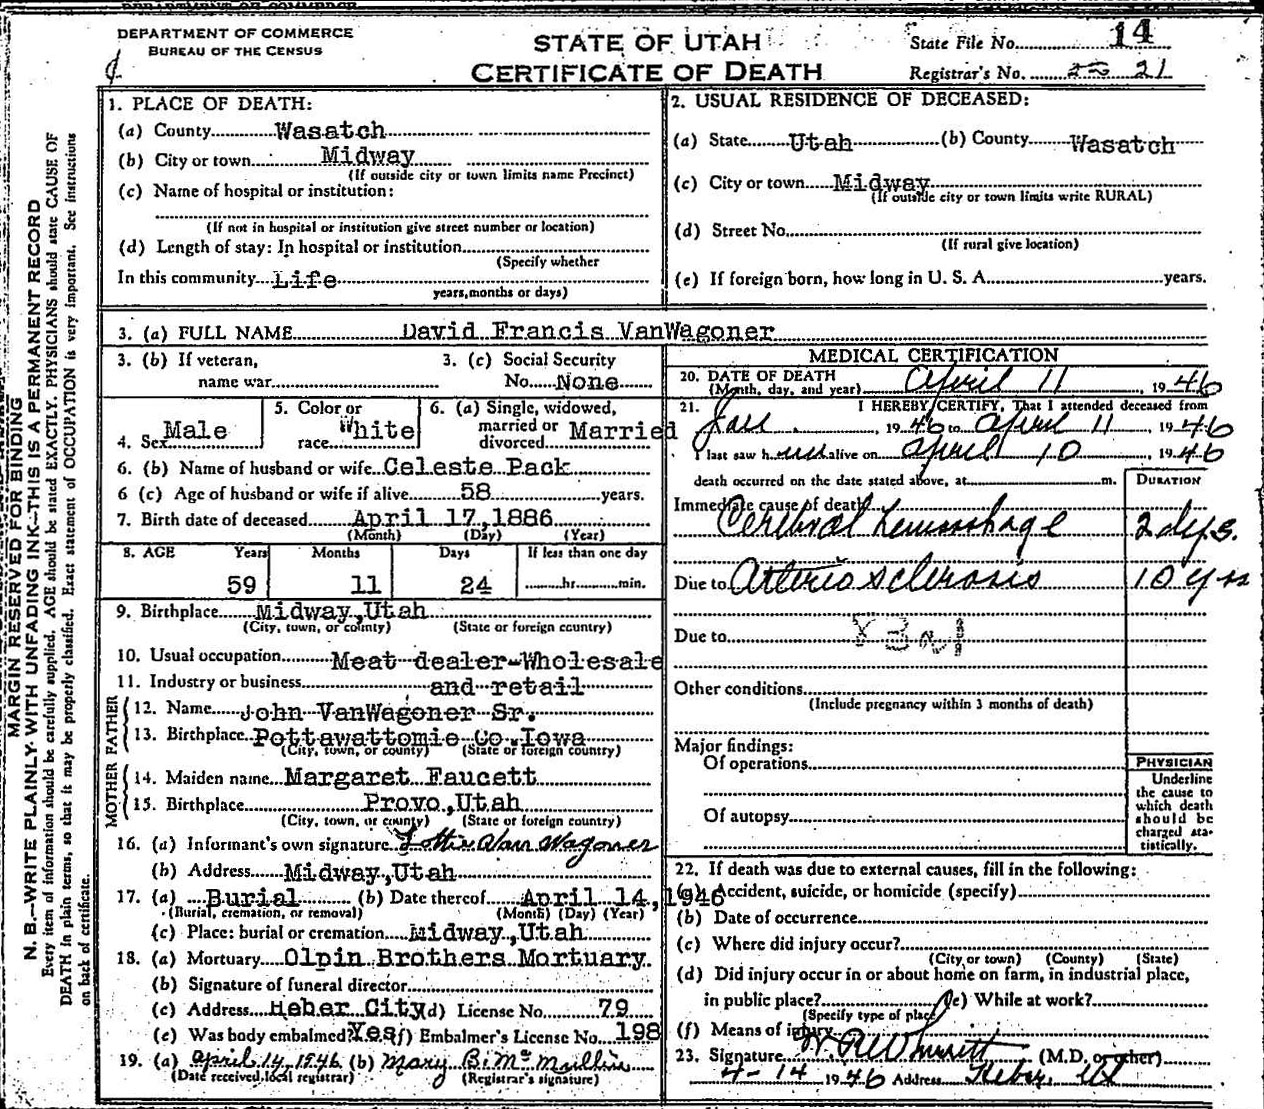 DEPARTMENT OF COMMERCE
BUREAU OF THE CENSUS
STATE OF UTAH
CERTIFICATE OF DEATH
State File No. 14
Registrar's No. 21
MARGIN RESERVED FOR BINDING
N. B.—WRITE PLAINLY WITH UNFADING INK—THIS IS A PERMANENT RECORD
Every item of information should be carefully supplied. AGE should be stated EXACTLY. PHYSICIANS should state CAUSE OF
DEATH in plain terms, so that it may be properly classified. Exact statement of OCCUPATION is very important. See instructions
on back of certificate.
1. PLACE OF DEATH:
(a) County Wasatch
(b) City or town Midway
(If outside city or town limits name Precinct)
(c) Name of hospital or institution:
(If not in hospital or institution give street number or location)
(d) Length of stay: In hospital or institution
(Specify whether
In this community Life
years, months or days)
2. USUAL RESIDENCE OF DECEASED:
(a) State Utah (b) County Wasatch
(c) City or town Midway
(If outside city or town limits write RURAL)
(d) Street No.
(If rural give location)
(e) If foreign born, how long in U. S. A. years.
3. (a) FULL NAME David Francis VanWagoner
3. (b) If veteran,
name war
3. (c) Social Security
No. None
4. Sex Male
5. Color or
race White
6. (a) Single, widowed,
married or
divorced Married
6. (b) Name of husband or wife Celeste Pack
6 (c) Age of husband or wife if alive 58 years.
7. Birth date of deceased April 17, 1886
(Month) (Day) (Year)
8. AGE Years Months Days If less than one day
59 11 24 hr. min.
9. Birthplace Midway, Utah
(City, town, or county) (State or foreign country)
10. Usual occupation Meat dealer-Wholesale
11. Industry or business and retail
FATHER
12. Name John VanWagoner Sr.
13. Birthplace Pottawattomie Co. Iowa
(City, town, or county) (State or foreign country)
MOTHER
14. Maiden name Margaret Faucett
15. Birthplace Provo, Utah
(City, town, or county) (State or foreign country)
16. (a) Informant's own signature Lottie Van Wagoner
(b) Address Midway, Utah
17. (a) Burial (b) Date thereof April 14, 1946
(Burial, cremation, or removal) (Month) (Day) (Year)
(c) Place: burial or cremation Midway, Utah
18. (a) Mortuary Olpin Brothers Mortuary.
(b) Signature of funeral director
(c) Address Heber City (d) License No. 79
(e) Was body embalmed? Yes (f) Embalmer's License No. 198
19. (a) April 14, 1946 (b) Mary B. McMullin
(Date received local registrar) (Registrar's signature)
MEDICAL CERTIFICATION
20. DATE OF DEATH
(Month, day, and year) April 11, 1946
21. I HEREBY CERTIFY, That I attended deceased from
Jan , 1946 to April 11, 1946
I last saw him alive on April 10, 1946
death occurred on the date stated above, at m.
DURATION
Immediate cause of death
Cerebral hemorrhage 2 dys.
Due to Arterio sclerosis 10 yrs
Due to
Other conditions
(Include pregnancy within 3 months of death)
Major findings:
Of operations
Of autopsy
PHYSICIAN
Underline
the cause to
which death
should be
charged sta-
tistically.
22. If death was due to external causes, fill in the following:
(a) Accident, suicide, or homicide (specify)
(b) Date of occurrence
(c) Where did injury occur?
(City or town) (County) (State)
(d) Did injury occur in or about home on farm, in industrial place,
in public place? (e) While at work?
(Specify type of place)
(f) Means of injury
23. Signature (M.D. or other)
4-14 1946 Address Heber Ut